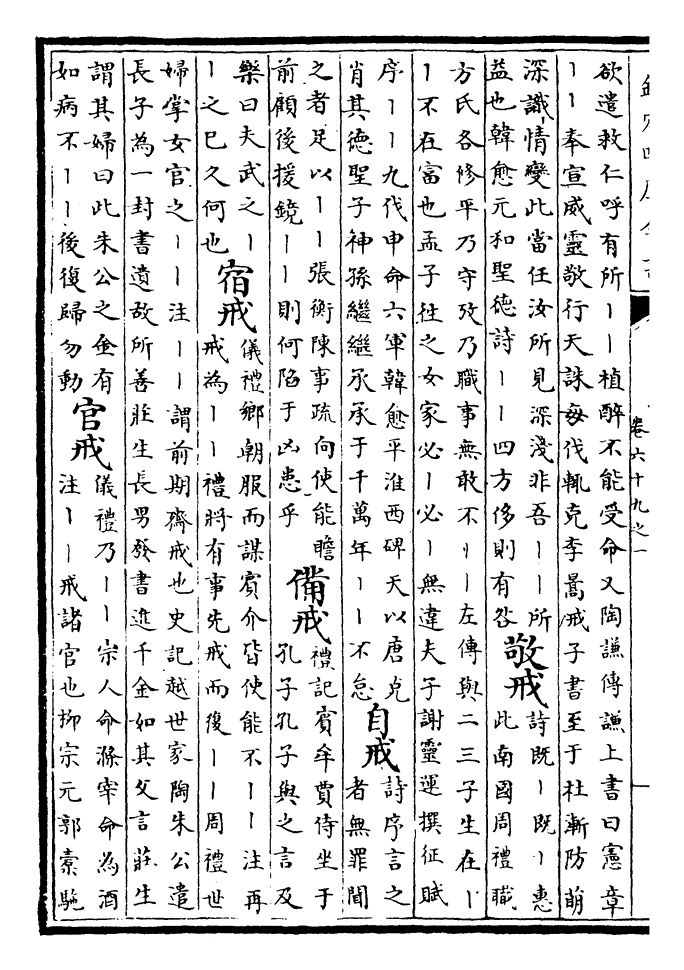 欽定四庫全書
卷六十九之一
欲遣救仁呼有所丨丨植醉不能受命又陶謙傳謙上書曰憲章
丨丨奉宣威靈敬行天誅每伐輒克李暠戒子書至于杜漸防萌
深識情變此當任汝所見深淺非吾丨丨所
益也韓愈元和聖德詩丨丨四方侈則有咎
敬戒
詩既丨既丨惠
此南國周禮職
方氏各修平乃守攷乃職事無敢不丨丨左傳與二三子生在丨
丨不在富也孟子往之女家必丨必丨無違夫子謝靈運撰征賦
序丨丨九代申命六軍韓愈平淮西碑天以唐克
肖其德聖子神孫繼繼承承于千萬年丨丨不怠
自戒
詩序言之
者無罪聞
之者足以丨丨張衡陳事疏向使能瞻
前顧後援鏡丨丨則何陷于凶患乎
備戒
禮記賓牟賈侍坐于
孔子孔子與之言及
樂曰夫武之丨
丨之已久何也
宿戒
儀禮鄉朝服而謀賓介皆使能不丨丨注再
戒為丨丨禮將有事先戒而復丨丨周禮世
婦掌女官之丨丨注丨丨謂前期齋戒也史記越世家陶朱公遣
長子為一封書遺故所善莊生長男發書進千金如其父言莊生
謂其婦曰此朱公之金有
如病不丨丨後復歸勿動
官戒
儀禮乃丨丨宗人命滌宰命為酒
注丨丨戒諸官也柳宗元郭橐駞